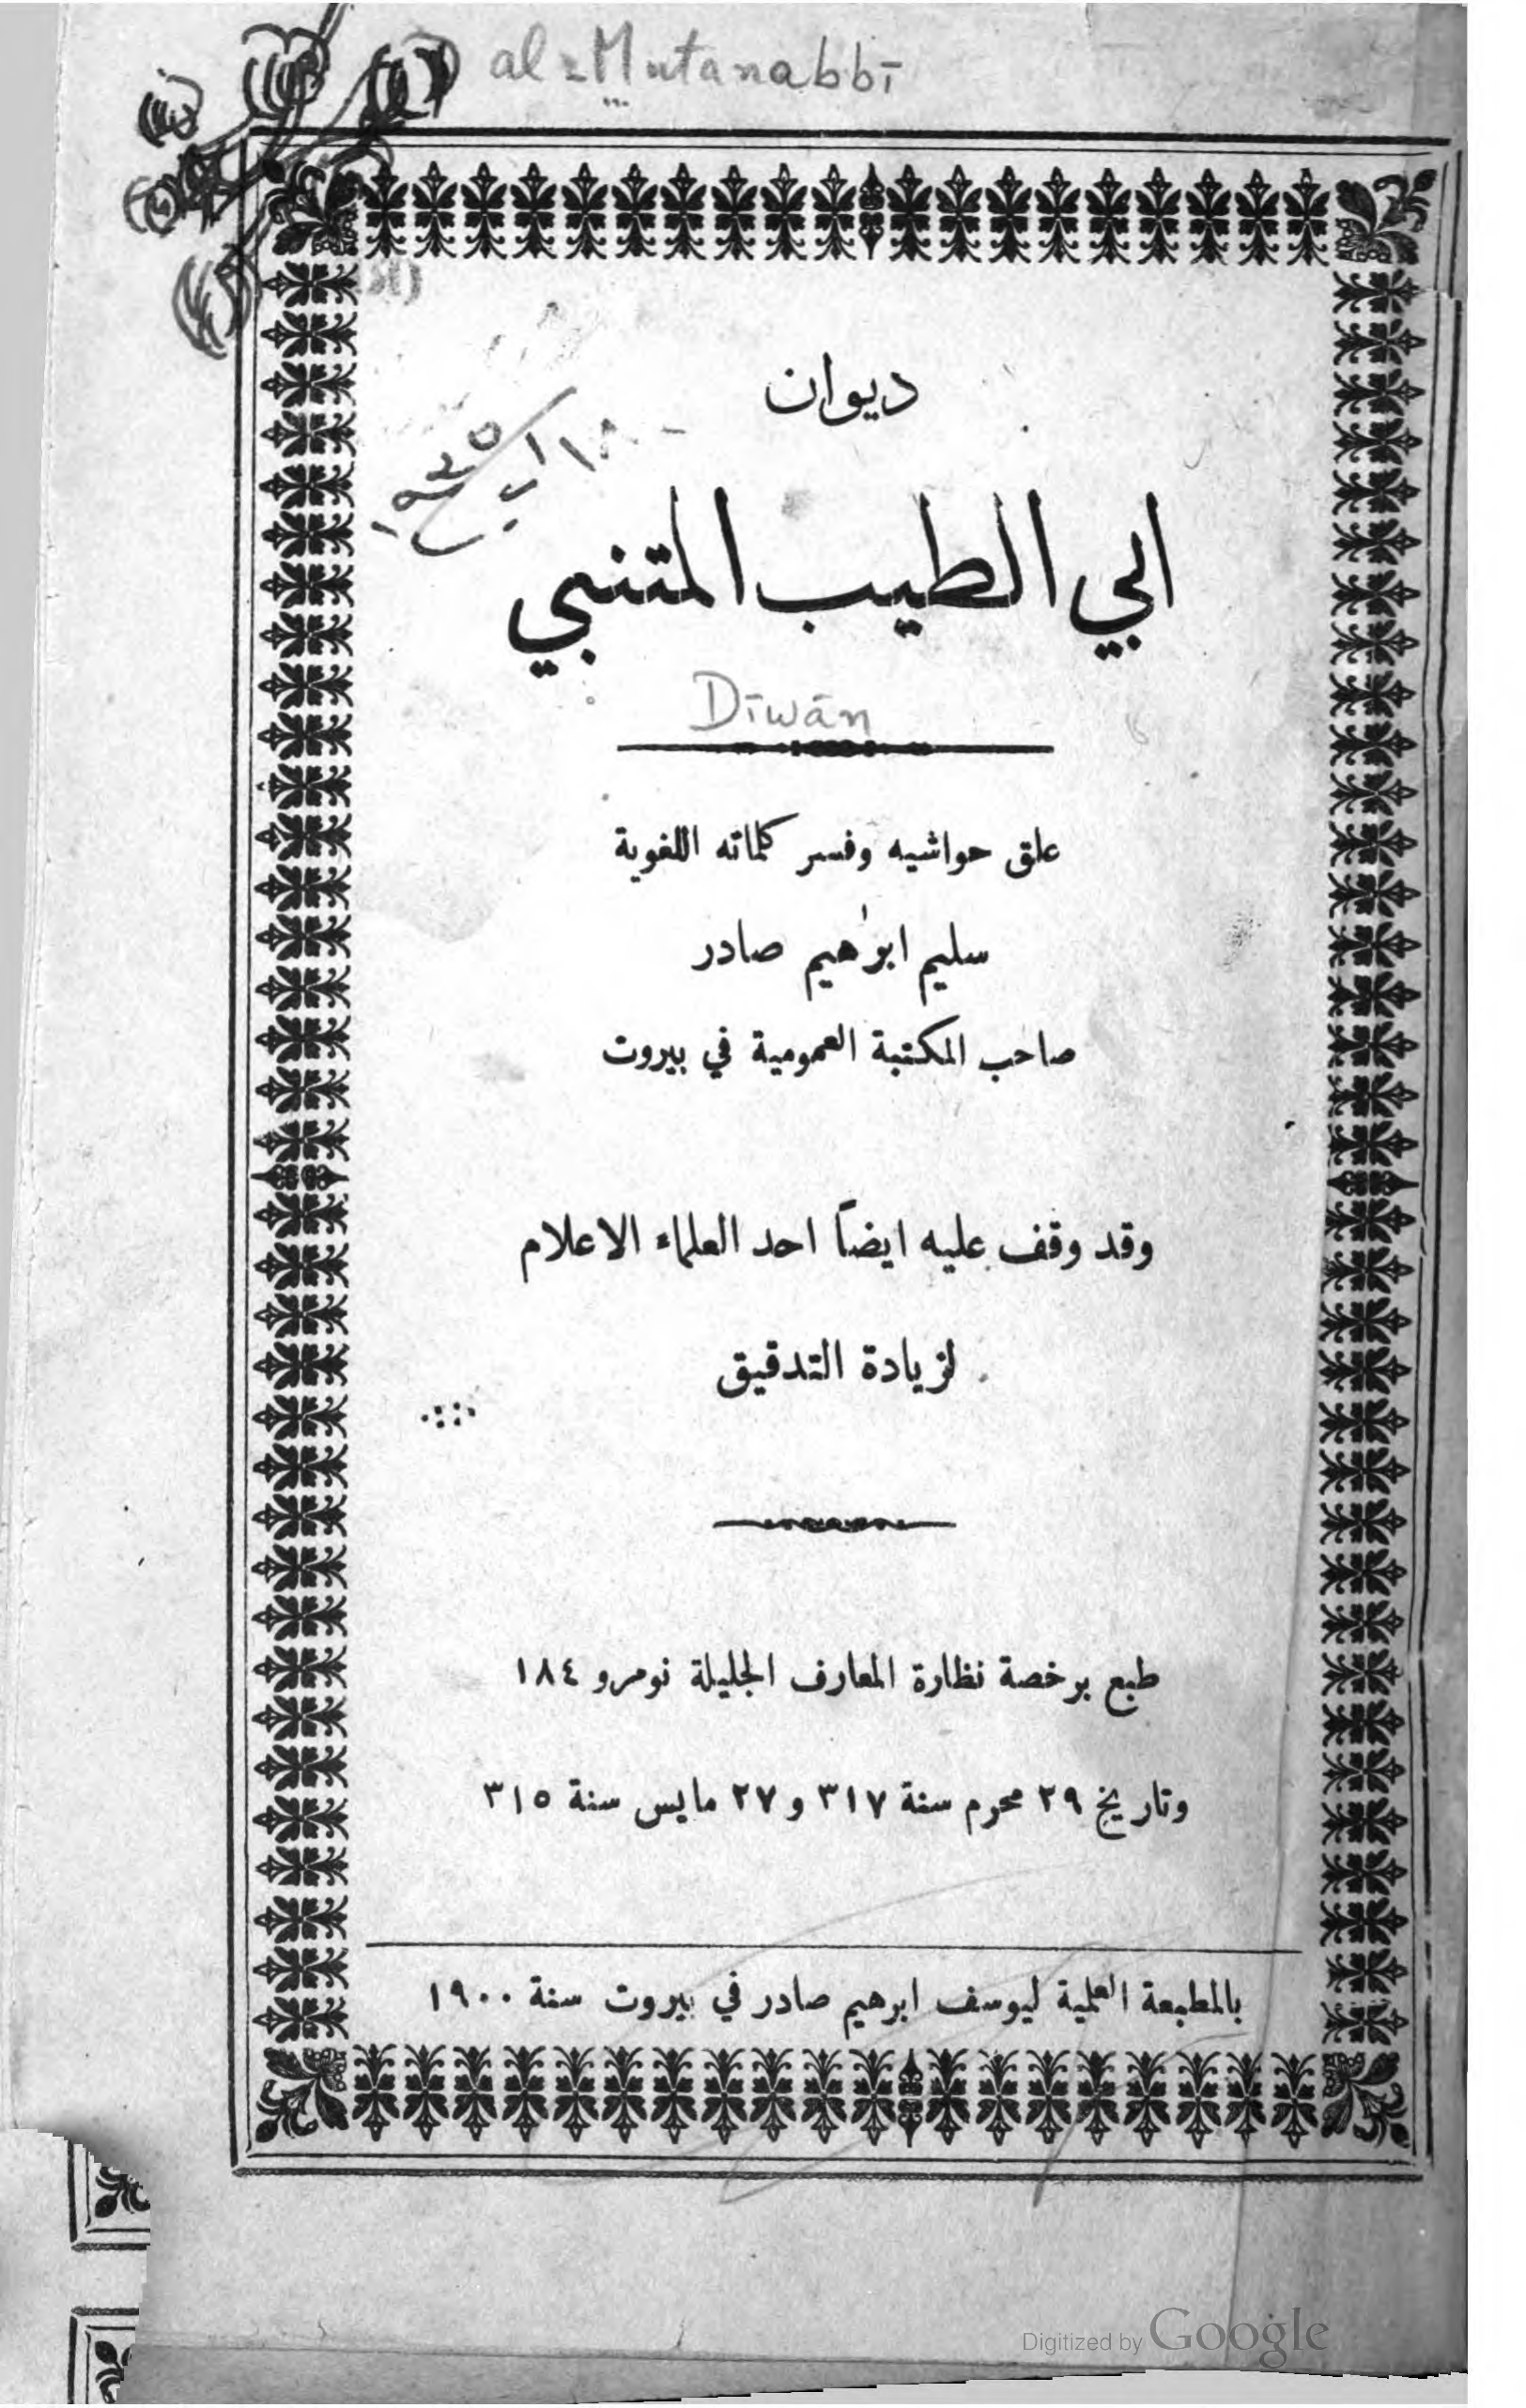 al-Mutanabbī
ديوان
ابي الطيب المتنبي
Dīwān
علق حواشيه وفسر كلماته اللغوية
سليم ابرٰهيم صادر
صاحب المكتبة العمومية في بيروت
وقد وقف عليه ايضاً احد العلماء الاعلام
لزيادة التدقيق
طبع برخصة نظارة المعارف الجليلة نومرو ١٨٤
وتاريخ ٢٩ محرم سنة ٣١٧ و ٢٧ مايس سنة ٣١٥
بالمطبعة العلمية ليوسف ابرهيم صادر في بيروت سنة ١٩٠٠
Digitized by Google